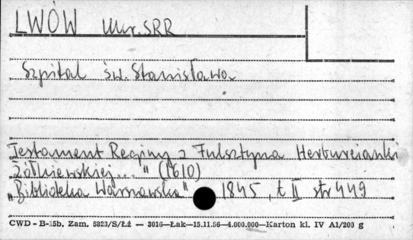 LWÓW Ukr. SRR
Szpital św. Stanisława
Testament Reginy z Fulsztyna Herburcianki
Żółkiewskiej..." (1610)
„Biblioteka Warszawska" 1845, t. II str 449
CWD - B-15b. Zam. 5323/S/Łż — 3016—Łak—15.11.56—4.000.000—Karton kl. IV A1/200 g